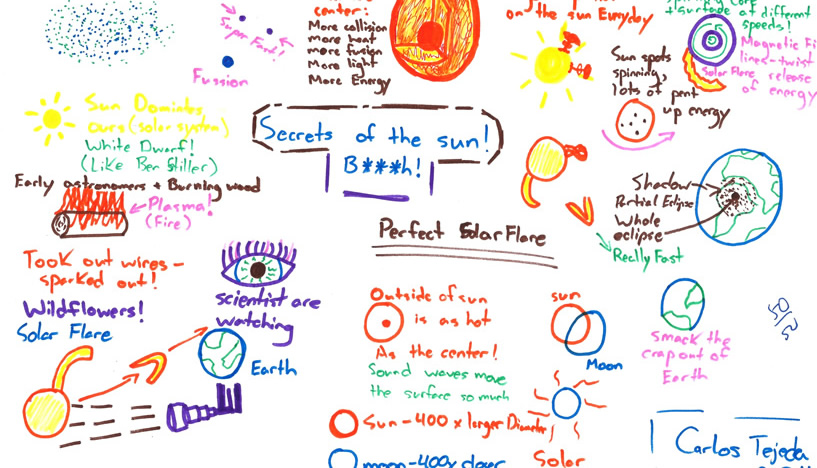 center:
More collision
more heat
more fusion
More light
More Energy
Super Fast!
Fussion
on the sun Everyday
+ surface at different
speeds!
Magnetic Fi
lines-twist
release
of energy
Solar Flare
Sun spots
spinning,
lots of pent
up energy
Sun Dominates
ours (solar system)
White Dwarf!
(Like Ben Stiller)
Early astronomers + Burning wood
Plasma!
(Fire)
Secrets of the sun!
B***h!
Shadow
Partial Eclipse
Whole
eclipse
Really Fast
Perfect Solar Flare
Took out wires -
sparked out!
Wildflowers!
Solar Flare
scientist are
watching
Earth
Outside of sun
is as hot
As the center!
Sound waves move
the surface so much
Sun - 400 x larger Diameter
moon - 400x closer
sun
Moon
Solar
smack the
crap out of
Earth
Carlos Tejeda